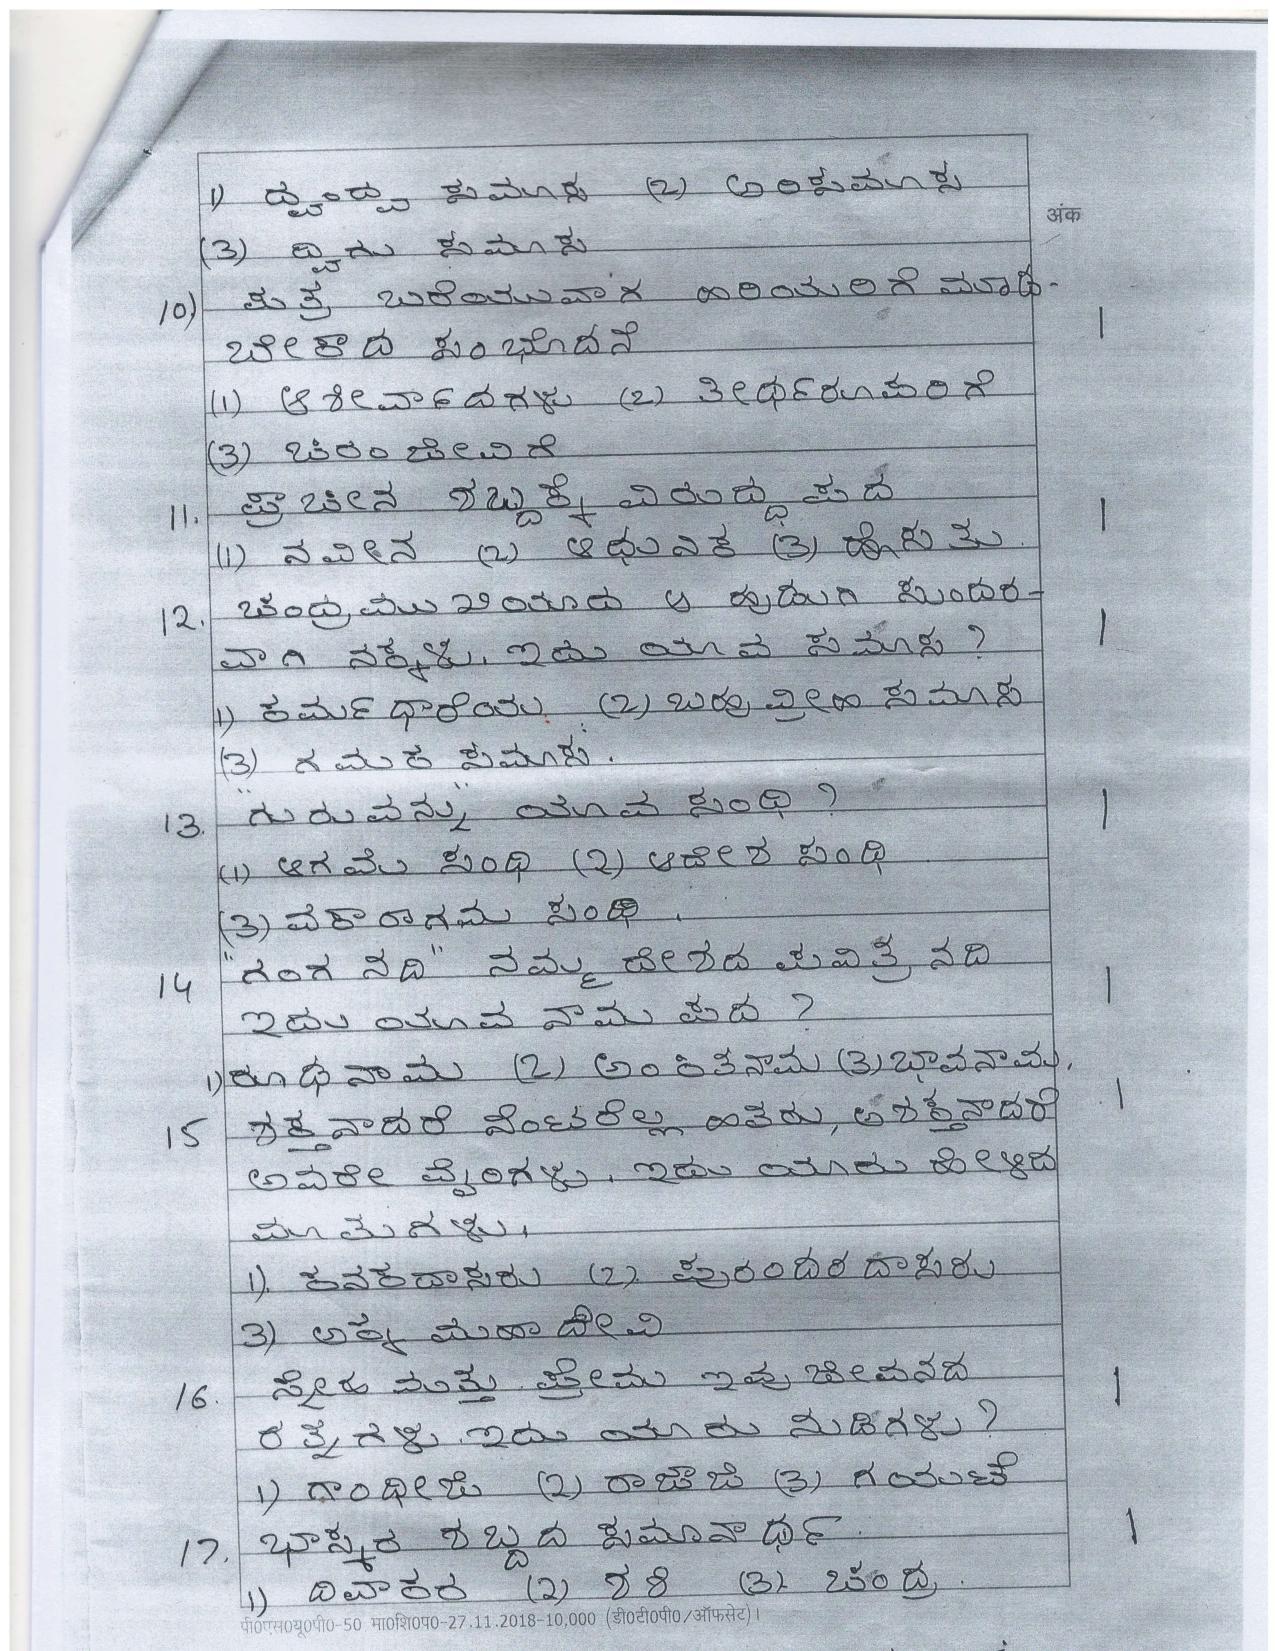 1) ದ್ವಂದ್ವ ಸಮಾಸ (2) ಅಂಶಿಸಮಾಸ
अंक
(3) ದ್ವಿಗು ಸಮಾಸ
10) ಪತ್ರ ಬರೆಯುವಾಗ ಹಿರಿಯರಿಗೆ ಮಾಡ-
ಬೇಕಾದ ಸಂಭೋದನೆ 1
(1) ಆಶೀರ್ವಾದಗಳು (2) ತೀರ್ಥರೂಪರಿಗೆ
(3) ಚಿರಂಜೀವಿಗೆ
11. ಪ್ರಾಚೀನ ಶಬ್ದಕ್ಕೆ ವಿರುದ್ಧ ಪದ 1
(1) ನವೀನ (2) ಆಧುನಿಕ (3) ಹೊಸತು.
12. ಚಂದ್ರಮುಖಿಯಾದ ಆ ಹುಡುಗಿ ಸುಂದರ- 1
ವಾಗಿ ನಕ್ಕಳು. ಇದು ಯಾವ ಸಮಾಸ?
1) ಕರ್ಮಧಾರೆಯ (2) ಬಹುವ್ರೀಹಿ ಸಮಾಸ
(3) ಗಮಕ ಸಮಾಸ.
13. "ಗುರುವನ್ನು" ಯಾವ ಸಂಧಿ? 1
(1) ಆಗಮ ಸಂಧಿ (2) ಆದೇಶ ಸಂಧಿ
(3) ವಕಾರಾಗಮ ಸಂಧಿ.
14 "ಗಂಗ ನದಿ" ನಮ್ಮ ದೇಶದ ಪವಿತ್ರ ನದಿ 1
ಇದು ಯಾವ ನಾಮ ಪದ?
1) ರೂಢನಾಮ (2) ಅಂಕಿತನಾಮ (3) ಭಾವನಾಮ.
15 ಶಕ್ತನಾದರೆ ನೆಂಟರೆಲ್ಲ ಹಿತರು, ಅಶಕ್ತನಾದರೆ 1
ಅವರೇ ವೈರಿಗಳು. ಇದು ಯಾರು ಹೇಳಿದ
ಮಾತುಗಳು.
1). ಕನಕದಾಸರು (2). ಪುರಂದರದಾಸರು
3) ಅಕ್ಕ ಮಹಾದೇವಿ
16. ಸ್ನೇಹ ಮತ್ತು ಪ್ರೇಮ ಇವು ಜೀವನದ 1
ರತ್ನಗಳು ಇದು ಯಾರು ನುಡಿಗಳು?
1) ಗಾಂಧೀಜಿ (2) ರಾಜಾಜಿ (3) ಗಯಟೆ
17. ಭಾಸ್ಕರ ಶಬ್ದದ ಸಮಾನಾರ್ಥ. 1
1) ದಿವಾಕರ (2) ಶಶಿ (3) ಚಂದ್ರ.
पी०एस०यू०पी०-50 मा०शि०प०-27.11.2018-10,000 (डी०टी०पी०/ऑफसेट)।